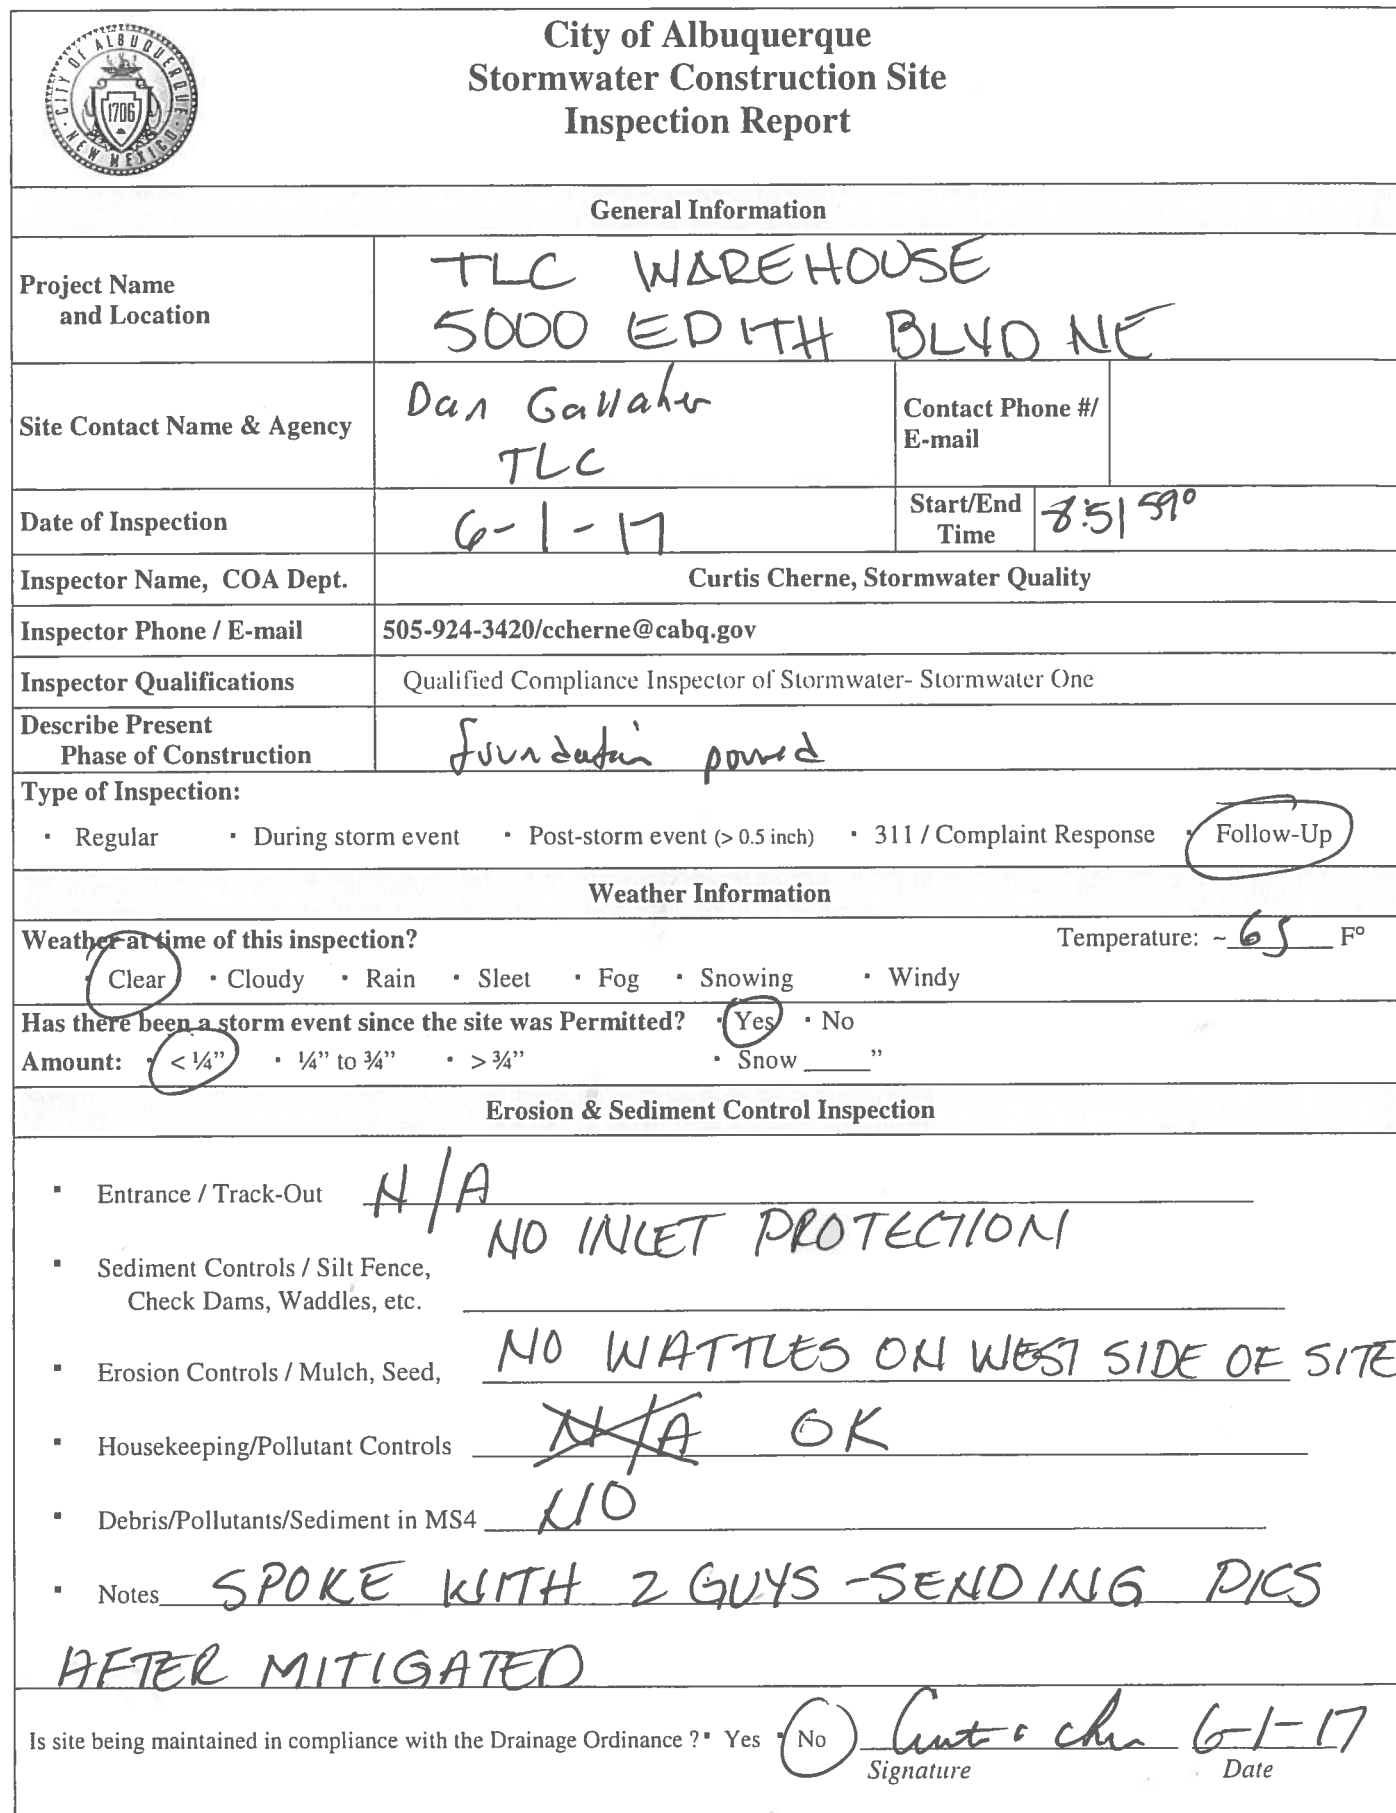 CITY OF ALBUQUERQUE · NEW MEXICO ·
1706
City of Albuquerque
Stormwater Construction Site
Inspection Report
General Information
Project Name
and Location
TLC WAREHOUSE
5000 EDITH BLVD NE
Site Contact Name & Agency
Dan Gallaher
TLC
Contact Phone #/
E-mail
Date of Inspection
6-1-17
Start/End
Time
8:51 59°
Inspector Name, COA Dept.
Curtis Cherne, Stormwater Quality
Inspector Phone / E-mail
505-924-3420/ccherne@cabq.gov
Inspector Qualifications
Qualified Compliance Inspector of Stormwater- Stormwater One
Describe Present
Phase of Construction
foundation poured
Type of Inspection:
▪ Regular ▪ During storm event ▪ Post-storm event (> 0.5 inch) ▪ 311 / Complaint Response ▪ Follow-Up
Weather Information
Weather at time of this inspection? Temperature: ~ 65 F°
▪ Clear ▪ Cloudy ▪ Rain ▪ Sleet ▪ Fog ▪ Snowing ▪ Windy
Has there been a storm event since the site was Permitted? ▪ Yes ▪ No
Amount: ▪ < ¼” ▪ ¼” to ¾” ▪ > ¾” ▪ Snow _____”
Erosion & Sediment Control Inspection
▪ Entrance / Track-Out N/A
NO INLET PROTECTION
▪ Sediment Controls / Silt Fence,
Check Dams, Waddles, etc.
▪ Erosion Controls / Mulch, Seed, NO WATTLES ON WEST SIDE OF SITE
▪ Housekeeping/Pollutant Controls N/A OK
▪ Debris/Pollutants/Sediment in MS4 NO
▪ Notes SPOKE WITH 2 GUYS -SENDING PICS
AFTER MITIGATED
Is site being maintained in compliance with the Drainage Ordinance ?▪ Yes ▪ No 6-1-17
Signature Date